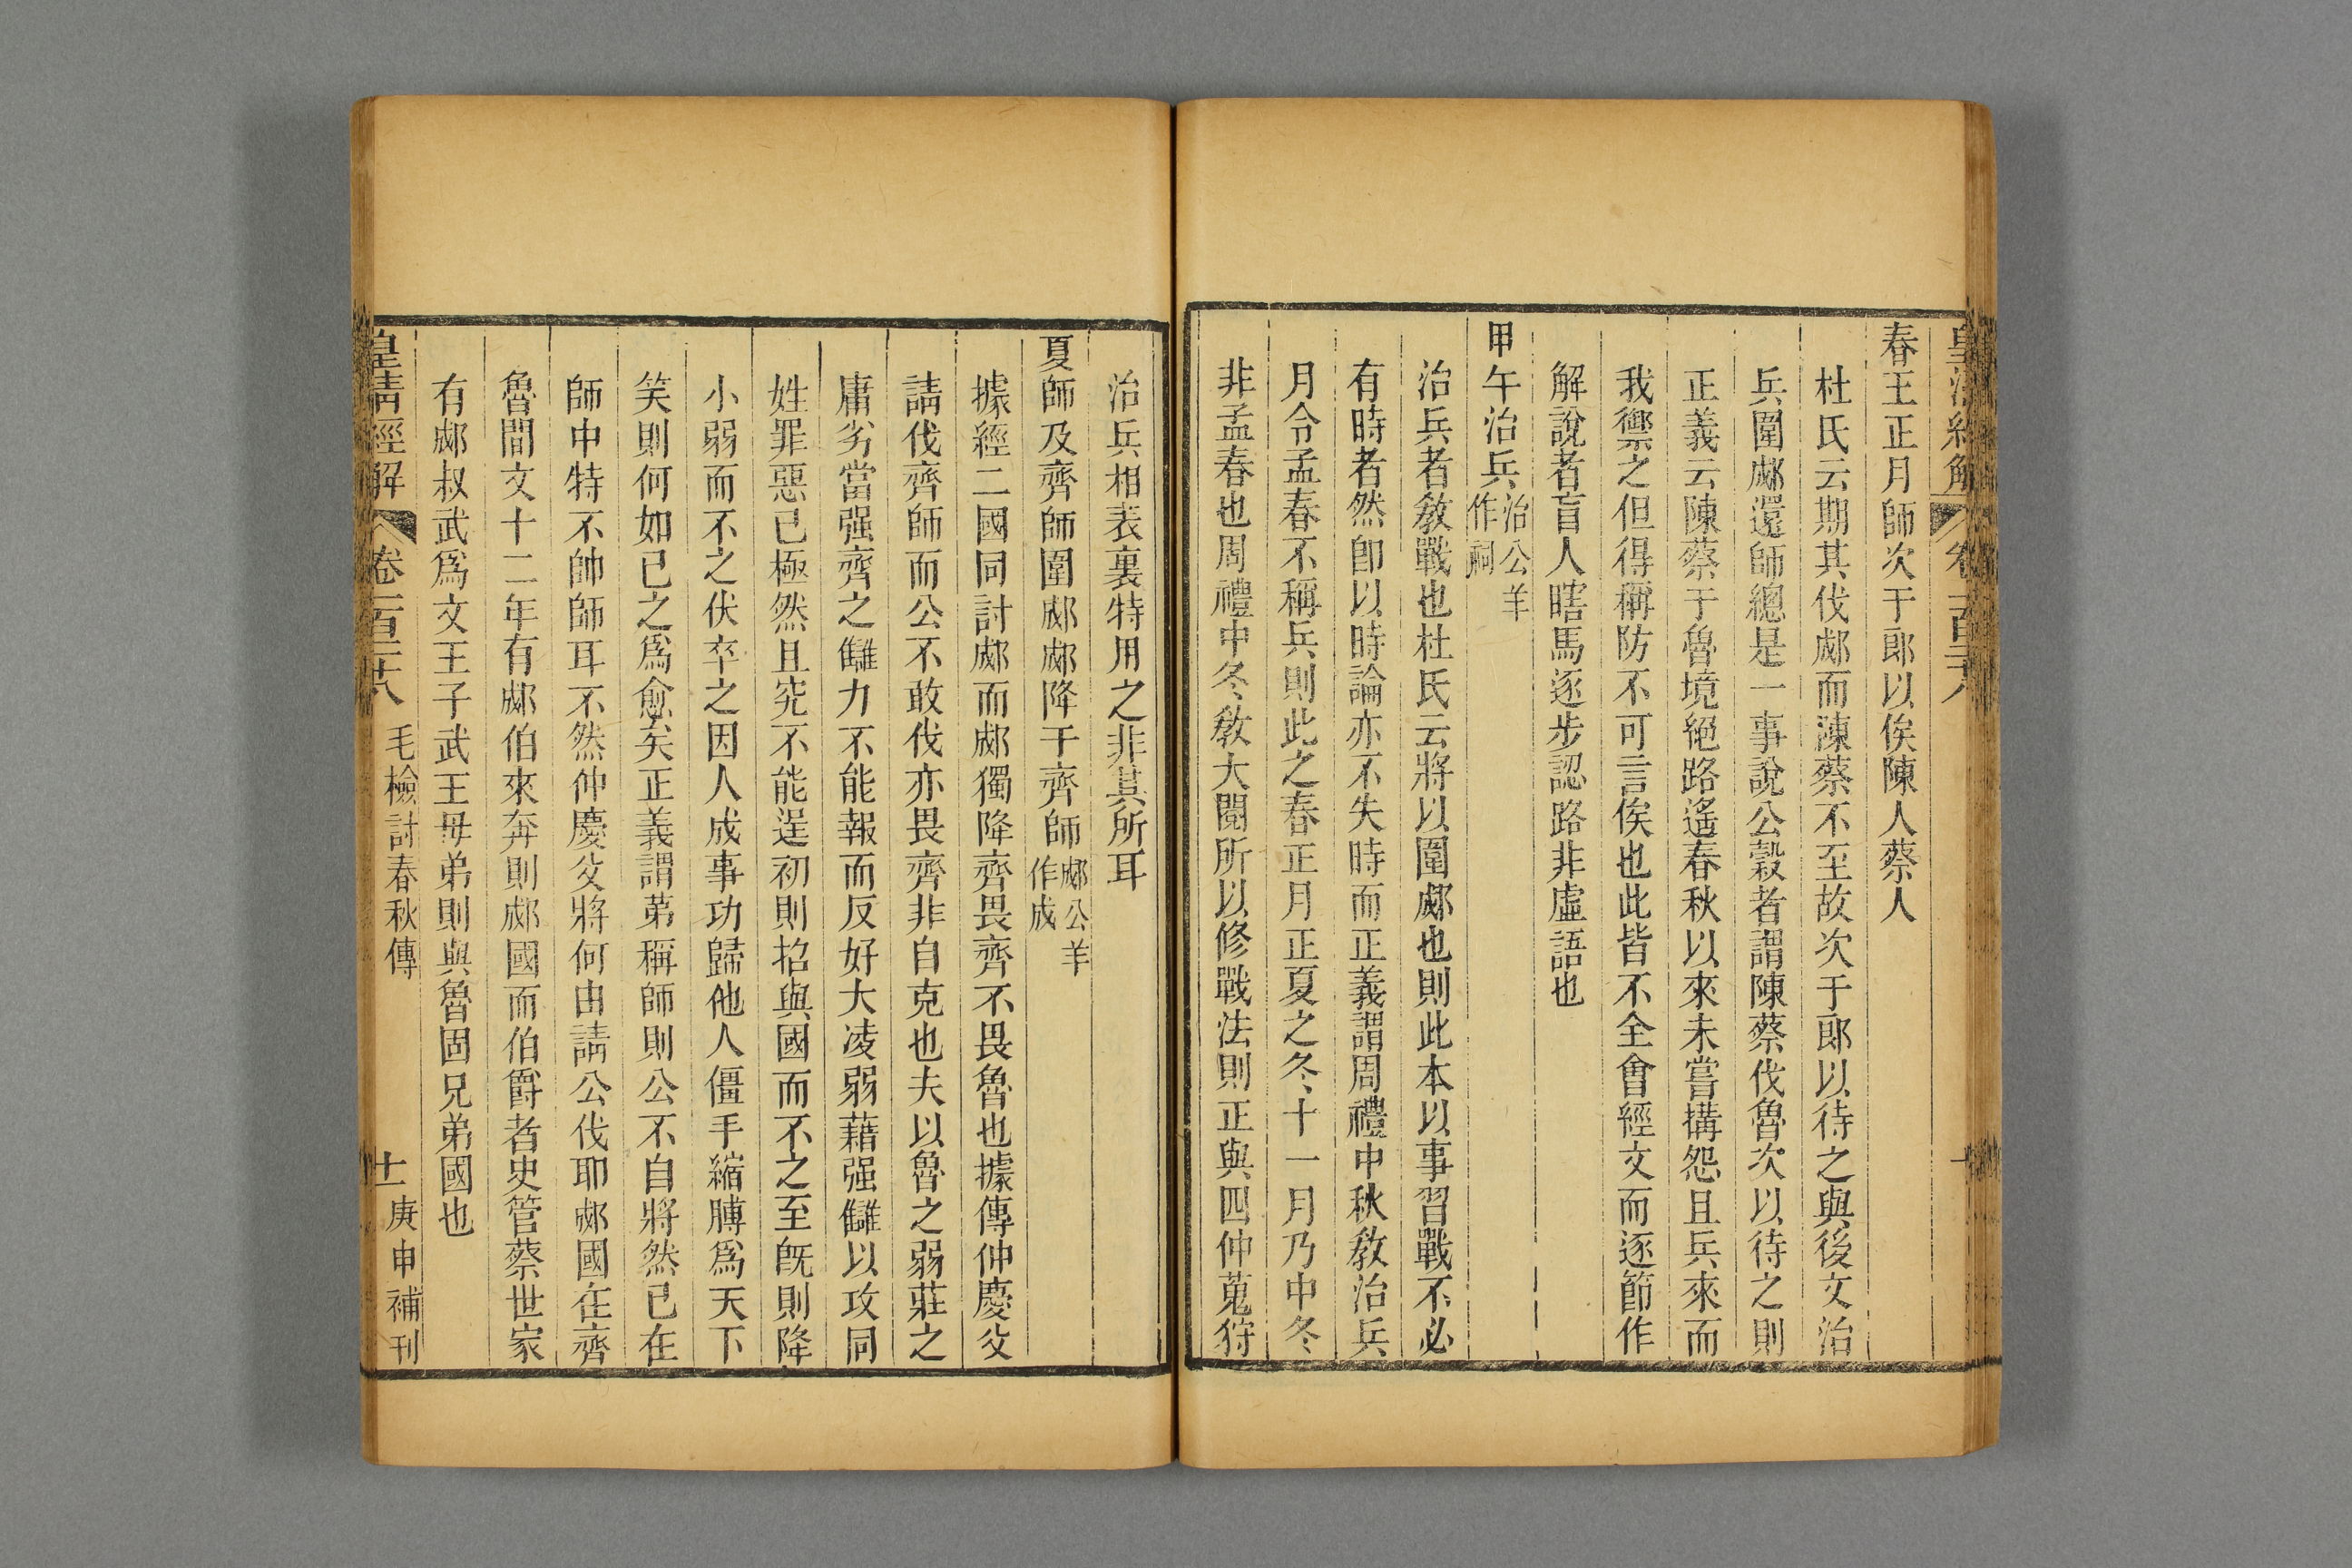 春王正月師次于郎以俟陳人蔡人
杜氏云期其伐郕而陳蔡不至故次于郎以待之與後文治
兵圍郕還師總是一事說公穀者謂陳蔡伐魯次以待之則
正義云陳蔡于魯境絕路遙春秋以來未嘗搆怨且兵來而
我禦之但得稱防不可言俟也此皆不全會經文而逐節作
解說者盲人瞎馬逐步認路非虛語也
甲午治兵治公羊作祠
治兵者敎戰也杜氏云將以圍郕也則此本以事習戰不必
有時者然卽以時論亦不失時而正義謂周禮中秋敎治兵
月令孟春不稱兵則此之春正月正夏之冬十一月乃中冬
非孟春也周禮中冬敎大閱所以修戰法則正與四仲蒐狩
治兵相表裏特用之非其所耳
夏師及齊師圍郕郕降于齊師郕公羊作成
據經二國同討郕而郕獨降齊畏齊不畏魯也據傳仲慶父
請伐齊師而公不敢伐亦畏齊非自克也夫以魯之弱莊之
庸劣當强齊之讎力不能報而反好大凌弱藉强讎以攻同
姓罪惡已極然且究不能逞初則招與國而不之至旣則降
小弱而不之伏卒之因人成事功歸他人僵手縮膊爲天下
笑則何如已之爲愈矣正義謂第稱師則公不自將然已在
師中特不帥師耳不然仲慶父將何由請公伐耶郕國在齊
魯間文十二年有郕伯來奔則郕國而伯爵者史管蔡世家
有郕叔武爲文王子武王母弟則與魯固兄弟國也
皇淸經解 卷一百二十八 毛檢討春秋傳 十一 庚申補刊